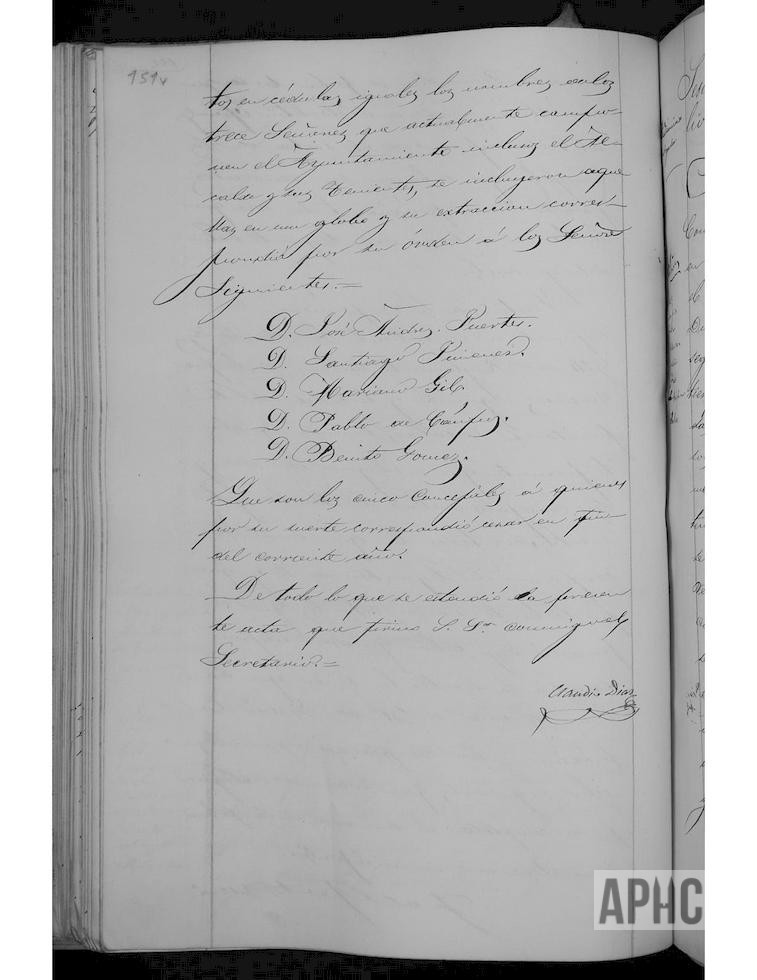 151v
tos en cédulas iguales los nombres de los
trece Señores que actualmente compo-
nen el Ayuntamiento inclusos el Al-
calde y sus Tenientes, se incluyeron aque-
llas en un globo y su extraccion corres-
pondió por su órden á los Señores
Siguientes.=
D. José Andres Puertes.
D. Santiago Ximenez.
D. Mariano Gil.
D. Pablo de Cámpos.
D. Benito Gomez.
Que son los cinco Concejales á quienes
por su suerte correspondió cesar en fin
del corriente año.
De todo lo que se estendió la presen
te acta que firma S. Sª. conmigo el
Secretario.=
Claudio Diaz
APHC